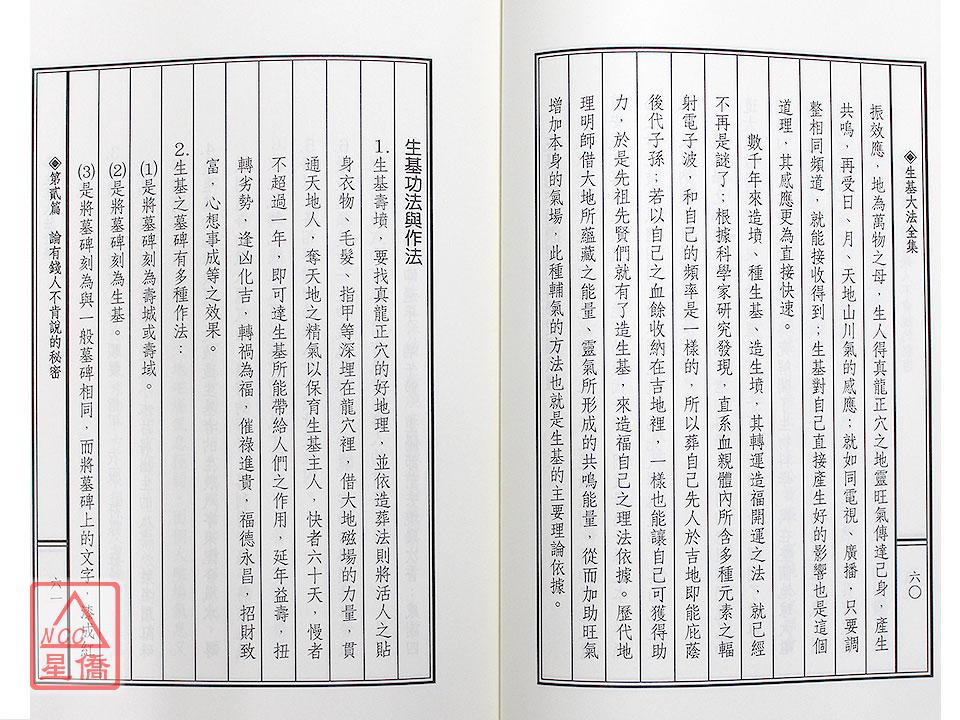 ◈生基大法全集
六〇
振效應，地為萬物之母，生人得真龍正穴之地靈旺氣傳達己身，產生
共鳴，再受日、月、天地山川氣的感應；就如同電視、廣播，只要調
整相同頻道，就能接收得到；生基對自己直接產生好的影響也是這個
道理，其感應更為直接快速。
數千年來造墳、種生基、造生墳，其轉運造福開運之法，就已經
不再是謎了；根據科學家研究發現，直系血親體內所含多種元素之輻
射電子波，和自己的頻率是一樣的，所以葬自己先人於吉地即能庇蔭
後代子孫；若以自己之血餘收納在吉地裡，一樣也能讓自己可獲得助
力，於是先祖先賢們就有了造生基，來造福自己之理法依據。歷代地
理明師借大地所蘊藏之能量、靈氣所形成的共鳴能量，從而加助旺氣
增加本身的氣場，此種輔氣的方法也就是生基的主要理論依據。
生基功法與作法
1.生基壽墳，要找真龍正穴的好地理，並依造葬法則將活人之貼
身衣物、毛髮、指甲等深埋在龍穴裡，借大地磁場的力量，貫
通天地人，奪天地之精氣以保育生基主人，快者六十天，慢者
不超過一年，即可達生基所能帶給人們之作用，延年益壽，扭
轉劣勢，逢凶化吉，轉禍為福，催祿進貴，福德永昌，招財致
富，心想事成等之效果。
2.生基之墓碑有多種作法：
⑴是將墓碑刻為壽城或壽域。
⑵是將墓碑刻為生基。
⑶是將墓碑刻為與一般墓碑相同，而將墓碑上的文字，漆成紅
◈第貳篇　論有錢人不肯說的秘密
六一
NCC
星僑